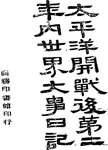 太平洋開戰後第二
年內世界大事日記
商務印書館印行